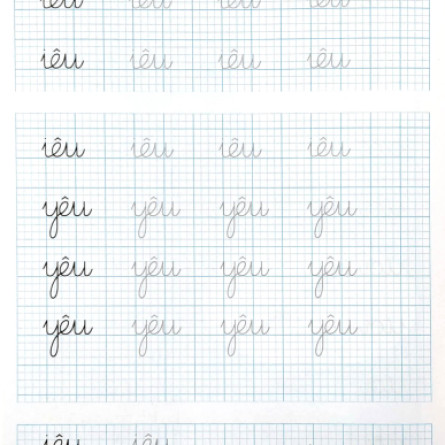 iêu iêu iêu iêu
iêu iêu iêu iêu
iêu iêu iêu iêu
yêu yêu yêu yêu
yêu yêu yêu yêu
yêu yêu yêu yêu
iêu iêu